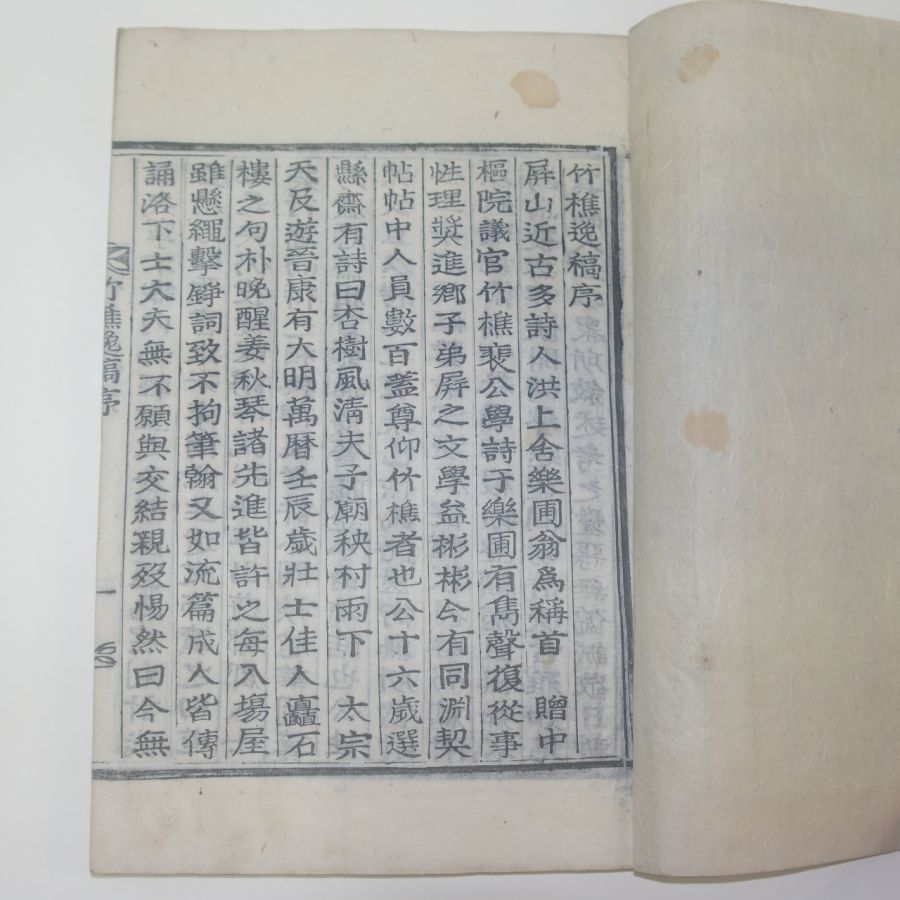 竹樵逸稿序
屛山近古多詩人洪上舍樂圃翁爲稱首 贈中
樞院議官竹樵裴公學詩于樂圃有雋聲復從事
性理奬進鄕子弟屛之文學益彬彬今有同淵契
帖帖中人員數百蓋尊仰竹樵者也公十六歲選
縣齋有詩曰杏樹風淸夫子廟秧村雨下 太宗
天及遊晉康有大明萬曆壬辰歲壯士佳人矗石
樓之句朴晩醒姜秋琴諸先進皆許之每入場屋
雖懸繩擊錚詞致不拘筆翰又如流篇成人皆傳
誦洛下士大夫無不願與交結親歿惕然曰今無
竹樵逸稿序
一